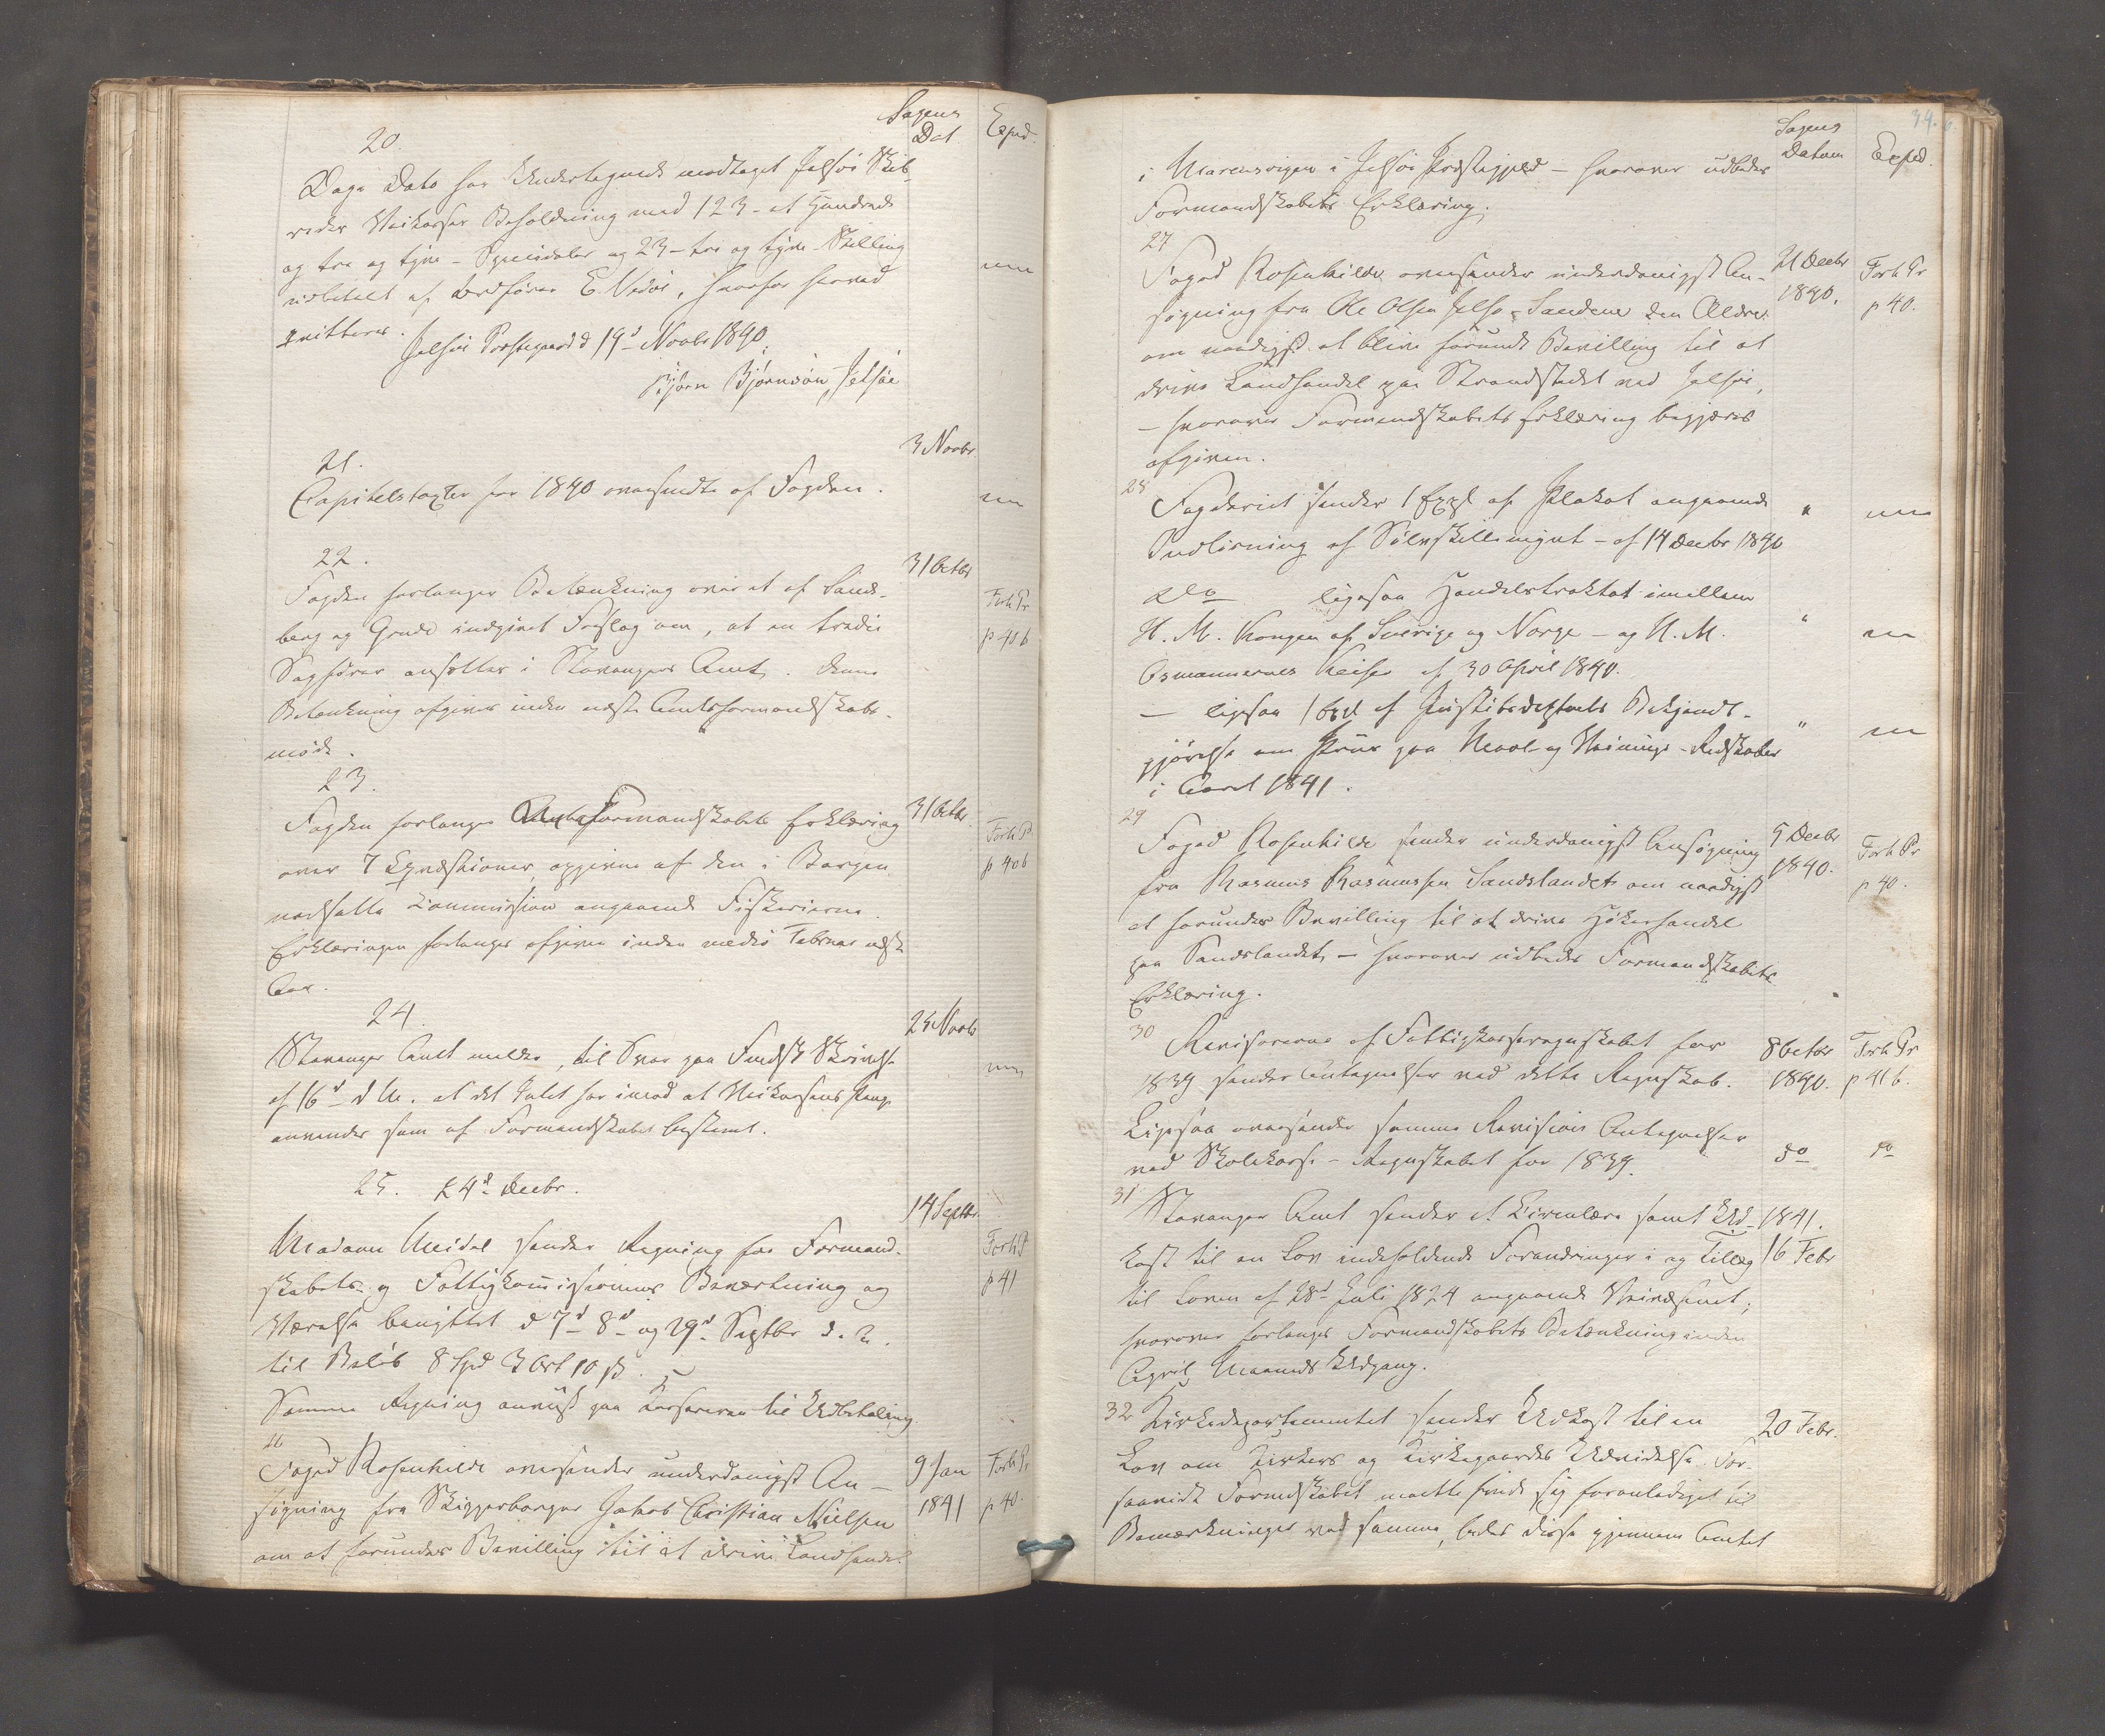 Sagens
Dat
Exped.
20.
Dags Dato har Undertegnede modtaget Jelsøe Skib-
redes Veikasses Beholdning med 123 - et Hundrede
og tre og tyve - Speciedaler og 23 - tre og tyve - Skilling
udbetalt af Ordfører E. Vadøe, hvorfor herved
qvitteres.
Jelsøe Præstegaard d 19d Novbr 1840.
Bjørn Bjørnsøn Jelsøe
21.
3 Novbr
Capitelstaxter for 1840 oversendte af Fogden.
22.
31 Octbr
Fogden forlanger Betænkning over et af Sands-
berg og Grude indgivet Forslag om, at en tredie
Sagfører ansættes i Stavanger Amt. Denne
Betænkning afgives inden næste Amtsformandskabs-
møde.
Forh Pr
p 40 b
23.
31 Octbr.
Fogden forlanger Formandskabets Erklæring
over 7 Qvæstioner, opgivne af den i Bergen
nedsatte Commission angaaende Fiskerierne.
Erklæringen forlanges afgiven inden medio Februar næste
Aar.
Forh P.
p 40 b
24.
25 Novbr
Stavanger Amt melder, til Svar paa Skrivelse
af 16d d M. at det Intet har imod at Veikassens Penge
anvendes som af Formandskabet bestemt.
25. d 4d Decbr.
14 Septbr.
Madame Meidel sender Regning for Formand-
skabets og Fattigkommissionens Beværtning og
Værelse benyttet d 7d 8d og 29d Septbr d. A.
til Beløb 8 Spd 3 Ort 10 ß.
Samme Regning anviist paa Kassereren til Udbetaling.
Forh P
p 41
26
Foged Rosenkilde oversender underdanigst An-
søgning fra Skipperborger Jakob Christian Nielsen
om at forundes Bevilling til at drive Landhandel
9 Jan
1841
Forh Pr
p 40.
34.
Sagens
Datum
Exped.
i Marensvigen i Jelsøe Præstegjeld - hvorover udbedes
Formandskabets Erklæring.
27
Foged Rosenkilde oversender underdanigst An-
søgning fra Ole Olsen Jelse-Sandene den Ældre
om naadigst at blive forundt Bevilling til at
drive Landhandel paa Strandstedet ved Jelsøe,
- hvorover Formandskabets Erklæring begjæres
afgiven.
21 Decbr
1840.
Forh Pr
p 40.
28
Fogderiet sender 1 Expl af Plakat angaaende
Indløsning af Sølvskillemynt - af 14 Decbr 1840
Do ligesaa Handelstraktat imellem
H. M. Kongen af Sverige og Norge - og H. M.
Osmannernes Keiser af 30 April 1840.
- ligesaa 1 Expl af Justitsdeptmts Bekjendt-
gjørelse om Priis paa Maal- og Veinings-Redskaber
i Aaret 1841.
29
Foged Rosenkilde sender underdanigst Ansøgning
fra Rasmus Rasmussen Sandslandet om naadigst
at forundes Bevilling til at drive Høkerhandel
paa Sandslandet, - hvorover udbedes Formandskabets
Erklæring.
5 Decbr
1840.
Forh Pr
p 40.
30
Revisorerne af Fattigkasseregnskabet for
1839 sender Antegnelser ved dette Regnskab.
Ligesaa oversender samme Revision Antegnelser
ved Skolekasse-Regnskabet for 1839.
8 Octbr
1840.
Forh Pr
p 41 b.
do
do
31
Stavanger Amt sender et Circulære samt Ud-
kast til en Lov indeholdende Forandringer i og Tillæg
til Loven af 28d Juli 1824 angaaende Veivæsenet;
hvorover forlanges Formandskabets Betænkning inden
April Maaneds Udgang.
1841.
16 Febr
32
Kirkedepartementet sender Udkast til en
Lov om Kirkers og Kirkegaardes Udvidelse. For-
saavidt Formdskabet maatte finde sig foranlediget til
Bemærkninger ved samme, bedes disse gjennem Amtet
20 Febr.